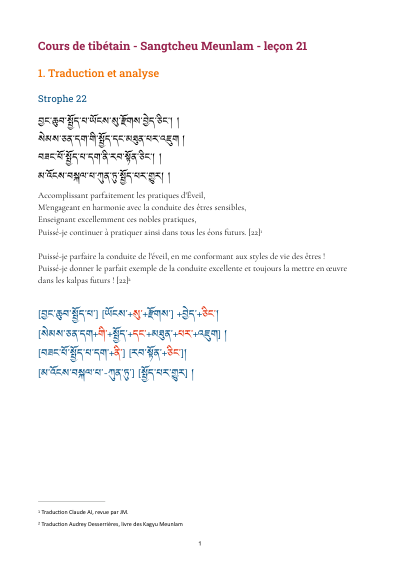 Cours de tibétain - Sangtcheu Meunlam - leçon 21
1. Traduction et analyse
Strophe 22
བྱང་ཆུབ་སྤྱོད་པ་ཡོངས་སུ་རྫོགས་བྱེད་ཅིང་། །
སེམས་ཅན་དག་གི་སྤྱོད་དང་མཐུན་པར་འཇུག །
བཟང་པོ་སྤྱོད་པ་དག་ནི་རབ་སྟོན་ཅིང་། །
མ་འོངས་བསྐལ་པ་ཀུན་ཏུ་སྤྱོད་པར་གྱུར། །
Accomplissant parfaitement les pratiques d'Éveil,
M'engageant en harmonie avec la conduite des êtres sensibles,
Enseignant excellemment ces nobles pratiques,
Puissé-je continuer à pratiquer ainsi dans tous les éons futurs. [22]¹
Puissé-je parfaire la conduite de l'éveil, en me conformant aux styles de vie des êtres !
Puissé-je donner le parfait exemple de la conduite excellente et toujours la mettre en œuvre
dans les kalpas futurs ! [22]²
[བྱང་ཆུབ་སྤྱོད་པ་] [ཡོངས་+སུ་+རྫོགས་] +བྱེད་+ཅིང་། །
[སེམས་ཅན་དག+གི་+སྤྱོད་+དང་+མཐུན་+པར་+འཇུག] །
[བཟང་པོ་སྤྱོད་པ་དག་+ནི་] [རབ་སྟོན་+ཅིང་]། །
[མ་འོངས་བསྐལ་པ་-ཀུན་ཏུ་] [སྤྱོད་པར་གྱུར] །
¹ Traduction Claude AI, revue par JM.
² Traduction Audrey Desserrières, livre des Kagyu Meunlam
1